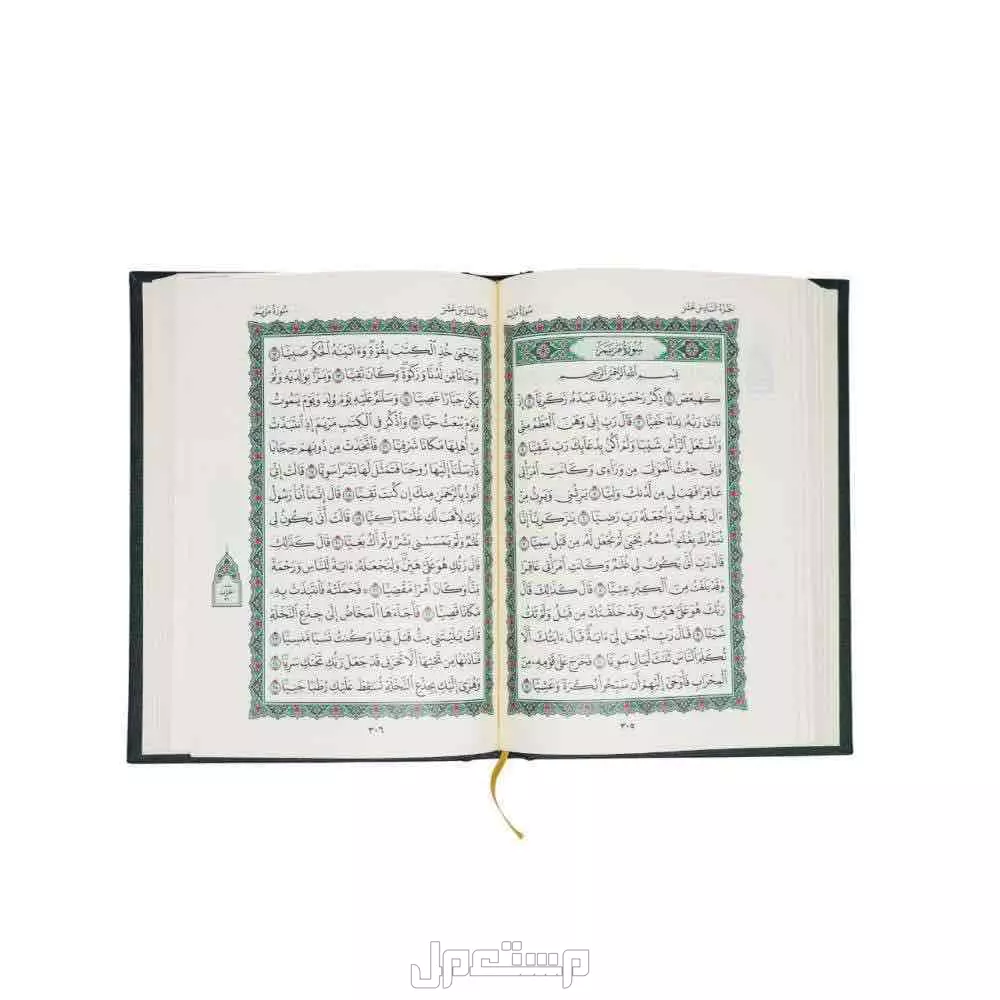 الجزء السادس عشر سورة مريم
سُورَةُ مَرْيَمَ
بِسْمِ ٱللَّهِ ٱلرَّحْمَٰنِ ٱلرَّحِيمِ
كٓهيعٓصٓ ١ ذِكْرُ رَحْمَتِ رَبِّكَ عَبْدَهُۥ زَكَرِيَّآ ٢ إِذْ
نَادَىٰ رَبَّهُۥ نِدَآءً خَفِيًّا ٣ قَالَ رَبِّ إِنِّي وَهَنَ ٱلْعَظْمُ مِنِّي
وَٱشْتَعَلَ ٱلرَّأْسُ شَيْبًا وَلَمْ أَكُنۢ بِدُعَآئِكَ رَبِّ شَقِيًّا ٤
وَإِنِّي خِفْتُ ٱلْمَوَٰلِيَ مِن وَرَآءِي وَكَانَتِ ٱمْرَأَتِي
عَاقِرًا فَهَبْ لِي مِن لَّدُنكَ وَلِيًّا ٥ يَرِثُنِي وَيَرِثُ مِنْ
ءَالِ يَعْقُوبَۖ وَٱجْعَلْهُ رَبِّ رَضِيًّا ٦ يَٰزَكَرِيَّآ إِنَّا
نُبَشِّرُكَ بِغُلَٰمٍ ٱسْمُهُۥ يَحْيَىٰ لَمْ نَجْعَل لَّهُۥ مِن قَبْلُ سَمِيًّا ٧
قَالَ رَبِّ أَنَّىٰ يَكُونُ لِي غُلَٰمٌ وَكَانَتِ ٱمْرَأَتِي عَاقِرًا
وَقَدْ بَلَغْتُ مِنَ ٱلْكِبَرِ عِتِيًّا ٨ قَالَ كَذَٰلِكَ قَالَ
رَبُّكَ هُوَ عَلَيَّ هَيِّنٌ وَقَدْ خَلَقْتُكَ مِن قَبْلُ وَلَمْ تَكُ
شَيْـًٔا ٩ قَالَ رَبِّ ٱجْعَل لِّيٓ ءَايَةًۚ قَالَ ءَايَتُكَ أَلَّا
تُكَلِّمَ ٱلنَّاسَ ثَلَٰثَ لَيَالٍ سَوِيًّا ١٠ فَخَرَجَ عَلَىٰ قَوْمِهِۦ مِنَ
ٱلْمِحْرَابِ فَأَوْحَىٰٓ إِلَيْهِمْ أَن سَبِّحُوا۟ بُكْرَةً وَعَشِيًّا ١١
٣٠٥
الجزء السادس عشر سورة مريم
يَٰيَحْيَىٰ خُذِ ٱلْكِتَٰبَ بِقُوَّةٍۖ وَءَاتَيْنَٰهُ ٱلْحُكْمَ صَبِيًّا ١٢
وَحَنَانًا مِّن لَّدُنَّا وَزَكَوٰةًۖ وَكَانَ تَقِيًّا ١٣ وَبَرًّۢا بِوَٰلِدَيْهِ وَلَمْ
يَكُن جَبَّارًا عَصِيًّا ١٤ وَسَلَٰمٌ عَلَيْهِ يَوْمَ وُلِدَ وَيَوْمَ يَمُوتُ
وَيَوْمَ يُبْعَثُ حَيًّا ١٥ وَٱذْكُرْ فِي ٱلْكِتَٰبِ مَرْيَمَ إِذِ ٱنتَبَذَتْ
مِنْ أَهْلِهَا مَكَانًا شَرْقِيًّا ١٦ فَٱتَّخَذَتْ مِن دُونِهِمْ حِجَابًا
فَأَرْسَلْنَآ إِلَيْهَا رُوحَنَا فَتَمَثَّلَ لَهَا بَشَرًا سَوِيًّا ١٧ قَالَتْ إِنِّيٓ
أَعُوذُ بِٱلرَّحْمَٰنِ مِنكَ إِن كُنتَ تَقِيًّا ١٨ قَالَ إِنَّمَآ أَنَا۠ رَسُولُ
رَبِّكِ لِأَهَبَ لَكِ غُلَٰمًا زَكِيًّا ١٩ قَالَتْ أَنَّىٰ يَكُونُ لِي
غُلَٰمٌ وَلَمْ يَمْسَسْنِي بَشَرٌ وَلَمْ أَكُ بَغِيًّا ٢٠ قَالَ كَذَٰلِكِ
قَالَ رَبُّكِ هُوَ عَلَيَّ هَيِّنٌۖ وَلِنَجْعَلَهُۥٓ ءَايَةً لِّلنَّاسِ وَرَحْمَةً
مِّنَّاۚ وَكَانَ أَمْرًا مَّقْضِيًّا ٢١ فَحَمَلَتْهُ فَٱنتَبَذَتْ بِهِۦ
مَكَانًا قَصِيًّا ٢٢ فَأَجَآءَهَا ٱلْمَخَاضُ إِلَىٰ جِذْعِ ٱلنَّخْلَةِ
قَالَتْ يَٰلَيْتَنِي مِتُّ قَبْلَ هَٰذَا وَكُنتُ نَسْيًا مَّنسِيًّا ٢٣
فَنَادَىٰهَا مِن تَحْتِهَآ أَلَّا تَحْزَنِي قَدْ جَعَلَ رَبُّكِ تَحْتَكِ سَرِيًّا ٢٤
وَهُزِّيٓ إِلَيْكِ بِجِذْعِ ٱلنَّخْلَةِ تُسَٰقِطْ عَلَيْكِ رُطَبًا جَنِيًّا ٢٥
٣٠٦
مستعمل